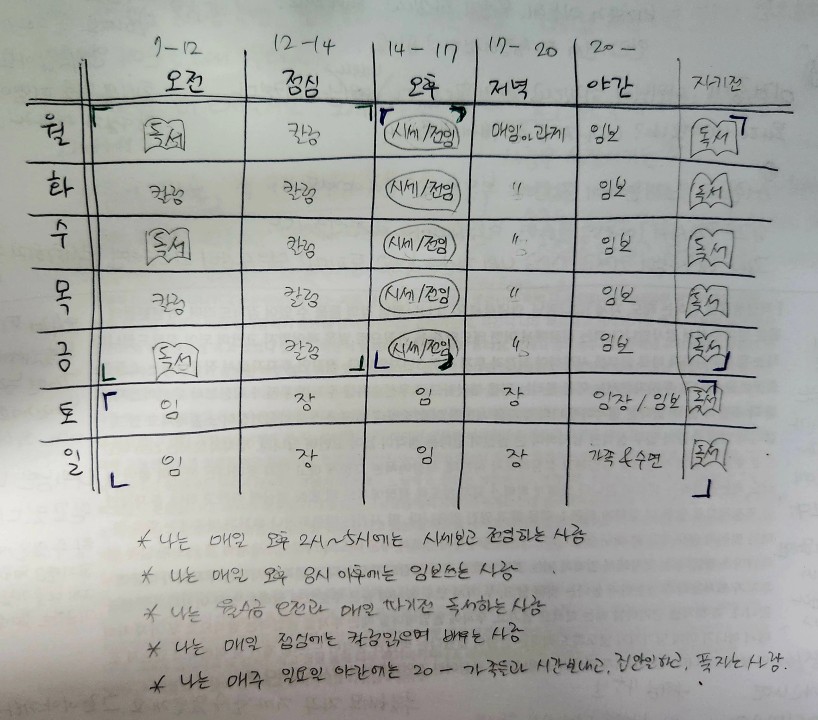 9-12 12-14 14-17 17-20 20-
오전 점심 오후 저녁 야간 자기전
월 독서 칼럼 시세/전임 매임이과제 임보 독서
화 칼럼 칼럼 시세/전임 〃 임보 독서
수 독서 칼럼 시세/전임 〃 임보 독서
목 칼럼 칼럼 시세/전임 〃 임보 독서
금 독서 칼럼 시세/전임 〃 임보 독서
토 임 장 임 장 임장/임보 독서
일 임 장 임 장 가족&수면 독서
* 나는 매일 오후 2시~5시에는 시세보고 전임하는 사람
* 나는 매일 오후 8시 이후에는 임보쓰는 사람
* 나는 월수금 오전과 매일 자기전 독서하는 사람
* 나는 매일 점심에는 칼럼읽으며 배우는 사람
* 나는 매주 일요일 야간에는 20- 가족들과 시간보내고, 집안일하고, 푹자는 사람.